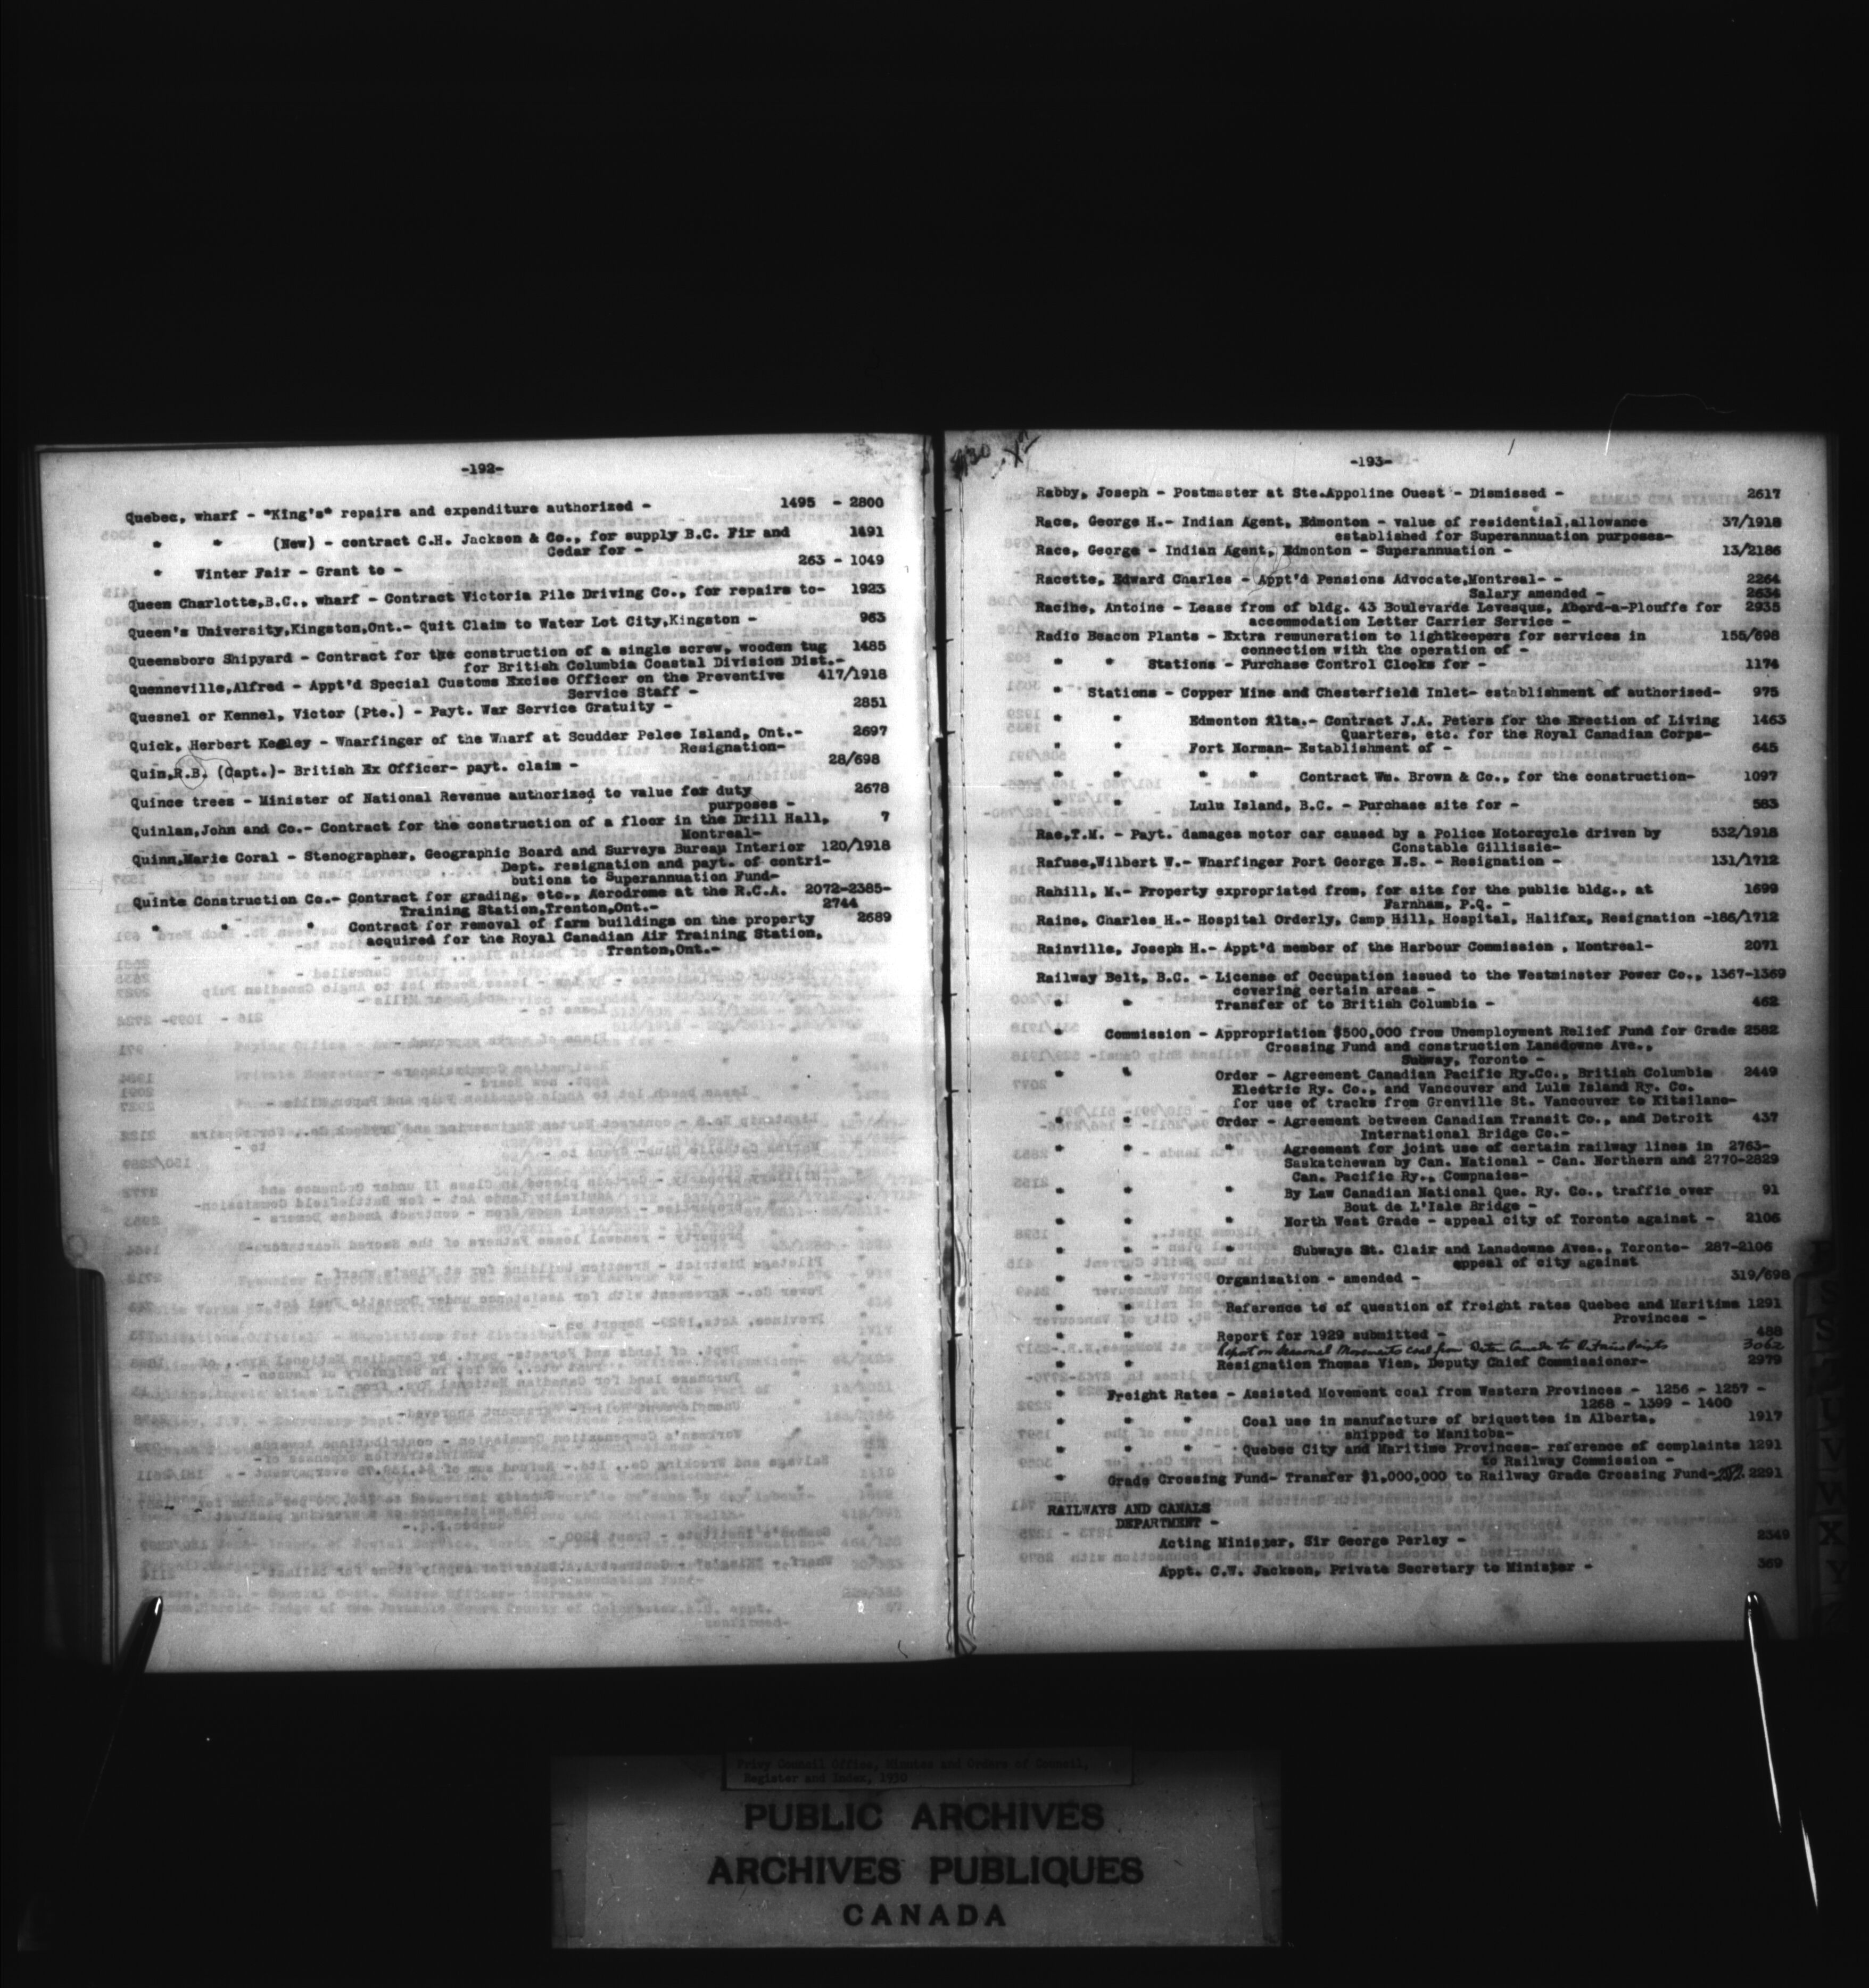 -192-
Quebec, wharf - "King's" repairs and expenditure authorized - 1495 - 2800
" " (New) - contract C.H. Jackson & Co., for supply B.C. Fir and 1491
Cedar for -
" Winter Fair - Grant to - 263 - 1049
Queen Charlotte,B.C., wharf - Contract Victoria Pile Driving Co., for repairs to- 1923
Queen's University,Kingston,Ont.- Quit Claim to Water Lot City,Kingston - 963
Queensboro Shipyard - Contract for the construction of a single screw, wooden tug 1485
for British Columbia Coastal Division Dist.-
Quenneville,Alfred - Appt'd Special Customs Excise Officer on the Preventive 417/1918
Service Staff -
Quesnel or Kennel, Victor (Pte.) - Payt. War Service Gratuity - 2851
Quick, Herbert Kegley - Wharfinger of the Wharf at Scudder Pelee Island, Ont.- 2697
Resignation-
Quin,R.B. (Capt.)- British Ex Officer- payt. claim - 28/698
Quince trees - Minister of National Revenue authorized to value for duty 2678
purposes -
Quinlan,John and Co.- Contract for the construction of a floor in the Drill Hall, 7
Montreal-
Quinn,Marie Coral - Stenographer, Geographic Board and Surveys Bureau Interior 120/1918
Dept. resignation and payt. of contri-
butions to Superannuation Fund-
Quinte Construction Co.- Contract for grading, etc., Aerodrome at the R.C.A. 2072-2385-
Training Station,Trenton,Ont.- 2744
" " " Contract for removal of farm buildings on the property 2689
acquired for the Royal Canadian Air Training Station,
Trenton,Ont.-
-193-
Rabby, Joseph - Postmaster at Ste.Appoline Ouest - Dismissed - 2617
Race, George H.- Indian Agent, Edmonton - value of residential,allowance 37/1918
established for Superannuation purposes-
Race, George - Indian Agent, Edmonton - Superannuation - 13/2186
Racette, Edward Charles - Appt'd Pensions Advocate,Montreal- - 2264
Salary amended - 2634
Racine, Antoine - Lease from of bldg. 43 Boulevarde Levesque, Abord-a-Plouffe for 2935
accommodation Letter Carrier Service -
Radio Beacon Plants - Extra remuneration to lightkeepers for services in 155/698
connection with the operation of -
" " Stations - Purchase Control Clocks for - 1174
" Stations - Copper Mine and Chesterfield Inlet- establishment of authorized- 975
" " Edmonton Alta.- Contract J.A. Peters for the Erection of Living 1463
Quarters, etc. for the Royal Canadian Corps-
" " Fort Norman- Establishment of - 645
" " " " Contract Wm. Brown & Co., for the construction- 1097
" " Lulu Island, B.C. - Purchase site for - 583
Rae,T.M. - Payt. damages motor car caused by a Police Motorcycle driven by 532/1918
Constable Gillissie-
Rafuse,Wilbert W.- Wharfinger Port George N.S. - Resignation - 131/1712
Rahill, M.- Property expropriated from, for site for the public bldg., at 1699
Farnham, P.Q. -
Raine, Charles H.- Hospital Orderly, Camp Hill, Hospital, Halifax, Resignation -186/1712
Rainville, Joseph H.- Appt'd member of the Harbour Commission , Montreal- 2071
Railway Belt, B.C. - License of Occupation issued to the Westminster Power Co., 1367-1369
covering certain areas -
" " Transfer of to British Columbia - 462
" Commission - Appropriation $500,000 from Unemployment Relief Fund for Grade 2582
Crossing Fund and construction Lansdowne Ave.,
Subway, Toronto -
" " Order - Agreement Canadian Pacific Ry.Co., British Columbia 2449
Electric Ry. Co., and Vancouver and Lulu Island Ry. Co.
for use of tracks from Grenville St. Vancouver to Kitsilano-
" " Order - Agreement between Canadian Transit Co., and Detroit 437
International Bridge Co.-
" " " Agreement for joint use of certain railway lines in 2763-
Saskatchewan by Can. National - Can. Northern and 2770-2829
Can. Pacific Ry., Compnaies-
" " " By Law Canadian National Que. Ry. Co., traffic over 91
Bout de L'Isle Bridge -
" " " North West Grade - appeal city of Toronto against - 2106
" " " Subways St. Clair and Lansdowne Aves., Toronto- 287-2106
appeal of city against
" " Organization - amended - 319/698
" " Reference to of question of freight rates Quebec and Maritime 1291
Provinces -
" " Report for 1929 submitted - 488
Report on Seasonal Movements coal from 3062
" " Resignation Thomas Vien, Deputy Chief Commissioner- 2979
" Freight Rates - Assisted Movement coal from Western Provinces - 1256 - 1257 -
1268 - 1399 - 1400
" " " Coal use in manufacture of briquettes in Alberta, 1917
shipped to Manitoba-
" " " Quebec City and Maritime Provinces- reference of complaints 1291
to Railway Commission -
" Grade Crossing Fund- Transfer $1,000,000 to Railway Grade Crossing Fund- 2291
RAILWAYS AND CANALS
DEPARTMENT -
Acting Minister, Sir George Perley - 2349
Appt. C.W. Jackson, Private Secretary to Minister - 369
Privy Council Office, Minutes and Orders of Council,
Register and Index, 1930
PUBLIC ARCHIVES
ARCHIVES PUBLIQUES
CANADA